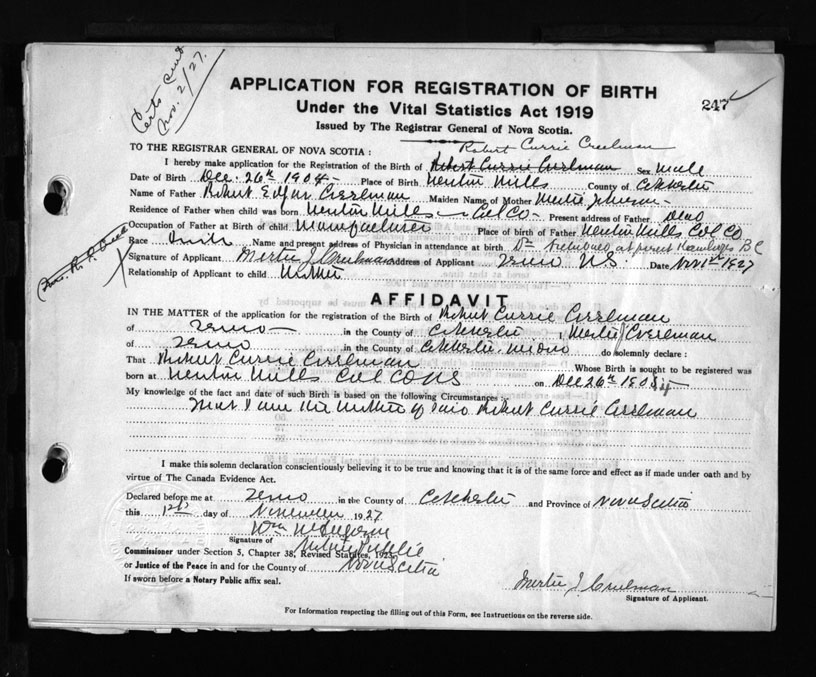 Certs sent
Nov. 2/27.
APPLICATION FOR REGISTRATION OF BIRTH
Under the Vital Statistics Act 1919
247
Issued by The Registrar General of Nova Scotia.
Robert Currie Creelman
TO THE REGISTRAR GENERAL OF NOVA SCOTIA:
I hereby make application for the Registration of the Birth of Robert Currie Creelman Sex male
Date of Birth Dec. 26th 1904 Place of Birth Mills County of Colchester
Name of Father Robert Edgar Creelman Maiden Name of Mother Mertie Johnson
Residence of Father when child was born Mills Col Co Present address of Father
Occupation of Father at Birth of child Manufacturer Place of birth of Father Mills Col Co
Race Name and present address of Physician in attendance at birth Dr at present BC
Signature of Applicant Mertie J Creelman Address of Applicant Truro N.S. Date Nov 1st 1927
Relationship of Applicant to child Mother
AFFIDAVIT
IN THE MATTER of the application for the registration of the Birth of Robert Currie Creelman
of Truro in the County of Colchester Mertie J Creelman
of Truro in the County of Colchester do solemnly declare:
That Robert Currie Creelman Whose Birth is sought to be registered was
born at Mills Col Co NS on Dec 26th 190
My knowledge of the fact and date of such Birth is based on the following Circumstances:
That I am the Mother of said Robert Currie Creelman
I make this solemn declaration conscientiously believing it to be true and knowing that it is of the same force and effect as if made under oath and by
virtue of The Canada Evidence Act.
Declared before me at Truro in the County of Colchester and Province of Nova Scotia
this 1st day of November 1927
Wm
Signature of Notary Public
Commissioner under Section 5, Chapter 38, Revised Statutes, 1923
or Justice of the Peace in and for the County of Nova Scotia
If sworn before a Notary Public affix seal.
Mertie J Creelman
Signature of Applicant.
For Information respecting the filling out of this Form, see Instructions on the reverse side.